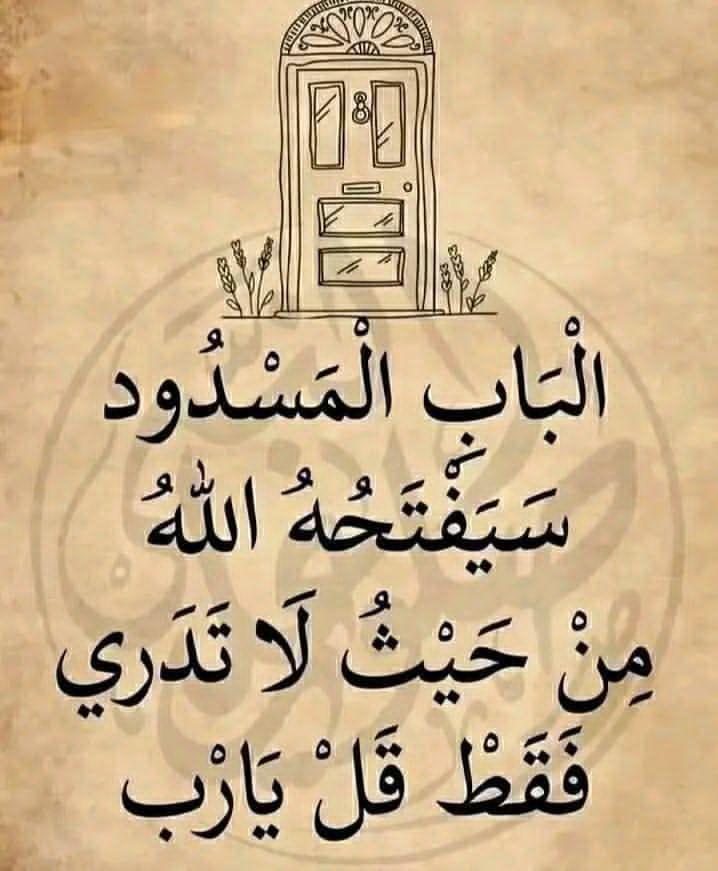 الْبَابِ الْمَسْدُود
سَيَفْتَحُهُ اللهُ
مِنْ حَيْثُ لَا تَدَري
فَقَطْ قَلْ يَارْب